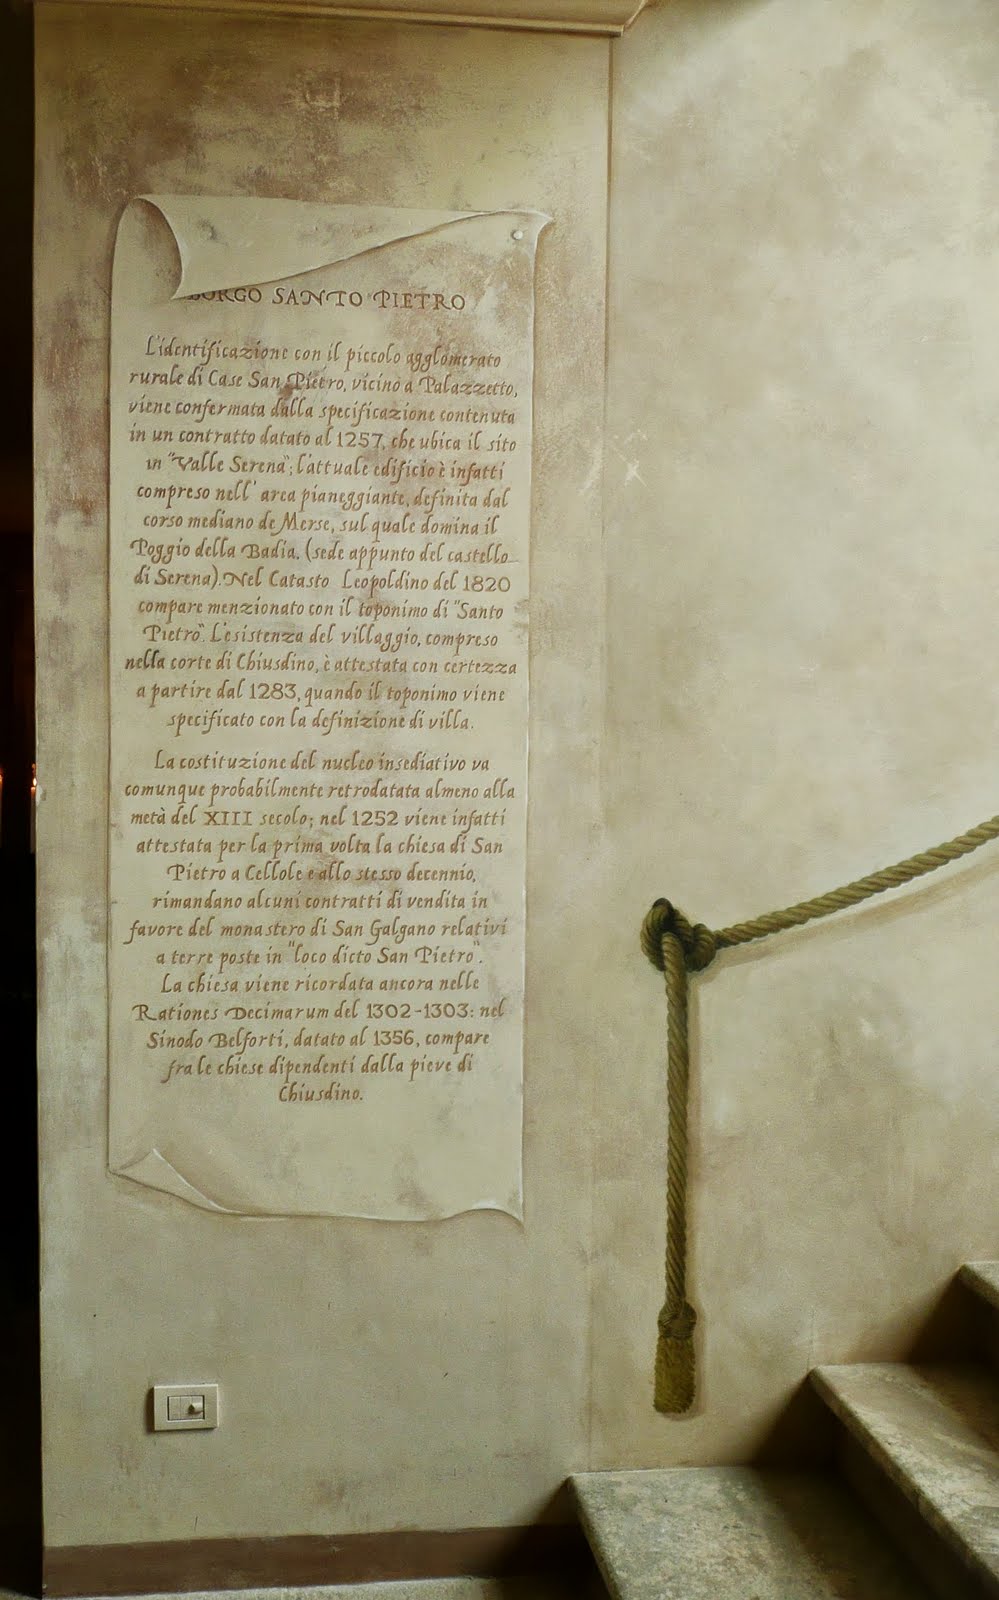 BORGO SANTO PIETRO
L'identificazione con il piccolo agglomerato
rurale di Case San Pietro, vicino a Palazzetto,
viene confermata dalla specificazione contenuta
in un contratto datato al 1257, che ubica il sito
in "Valle Serena"; l'attuale edificio è infatti
compreso nell' area pianeggiante, definita dal
corso mediano de Merse, sul quale domina il
Poggio della Badia, (sede appunto del castello
di Serena). Nel Catasto Leopoldino del 1820
compare menzionato con il toponimo di "Santo
Pietro". L'esistenza del villaggio, compreso
nella corte di Chiusdino, è attestata con certezza
a partire dal 1283, quando il toponimo viene
specificato con la definizione di villa.
La costituzione del nucleo insediativo va
comunque probabilmente retrodatata almeno alla
metà del XIII secolo; nel 1252 viene infatti
attestata per la prima volta la chiesa di San
Pietro a Cellole e allo stesso decennio,
rimandano alcuni contratti di vendita in
favore del monastero di San Galgano relativi
a terre poste in "loco dicto San Pietro".
La chiesa viene ricordata ancora nelle
Rationes Decimarum del 1302-1303: nel
Sinodo Belforti, datato al 1356, compare
fra le chiese dipendenti dalla pieve di
Chiusdino.